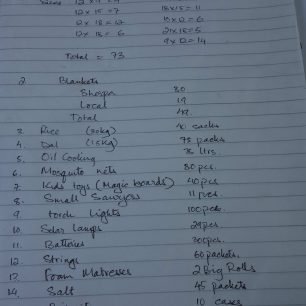 12 x 15 = 7 18 x 15 = 11
12 x 18 = 12 15 x 12 = 6
12 x 18 = 6 21 x 18 = 5
9 x 12 = 14
Total = 73
2. Blankets
Sherpa 30
Local 19
Total 49
3. Rice (30kg) 40 sacks
4. Dal (15kg) 75 packs
5. Oil Cooking 75 ltrs.
6. Mosquito nets 80 pcs.
7. Kids toys (Magic boards) 40 pcs
8. Small 11 pcs.
9. Torch Lights 100 pcs.
10. Solar lamps 29 pcs
11. Batteries 200 pcs
12 Strings 60 packets.
13. Foam Matresses 2 Big Rolls
14. Salt 45 packets
10 cases